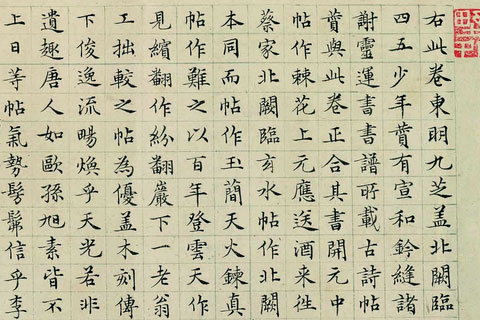 右此卷東明九芝盖北闕臨
四五少年賛有宣和鈐縫諸
謝靈運書書譜所載古詩帖
賛與此卷正合其書開元中
帖作棘花上元應送酒来徃
蔡家北闕臨玄水帖作北闕
本同而帖作玉簡天火鍊真
帖作難之以百年登雲天作
見繽翻作紛翻巖下一老翁
工拙較之帖為優盖木刻傳
下俊逸流暢煥乎天光若非
遺趣唐人如歐孫旭素皆不
上日等帖氣勢髣髴信乎李